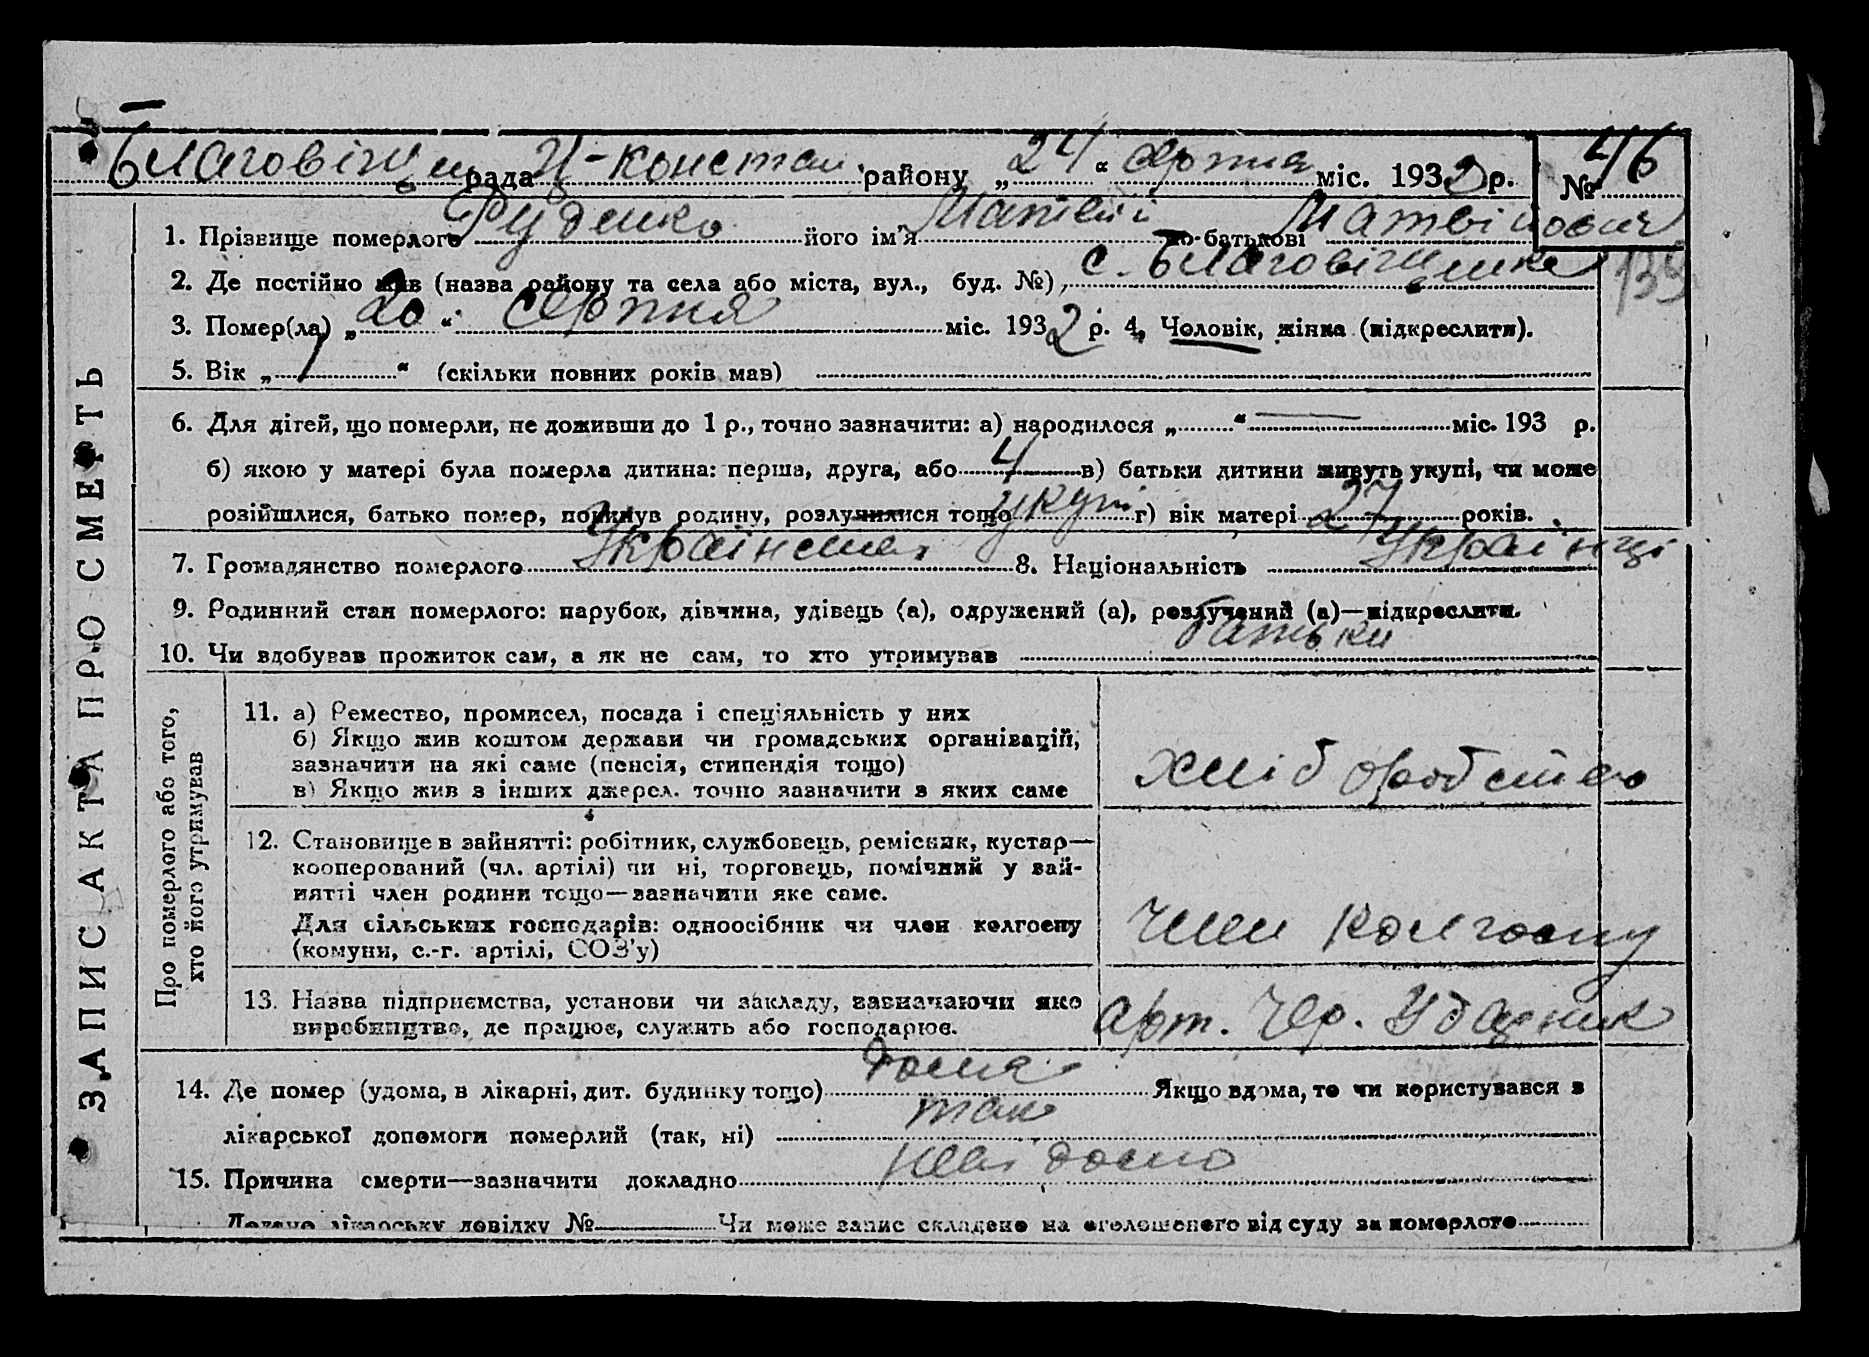 Благовіщен рада Ц-Констан. району „ 24 “ серпня міс. 1932 р. № 46
1. Прізвище померлого Руденко його ім’я Матвій по-батькові Матвійович
2. Де постійно жив (назва району та села або міста, вул., буд. №) с. Благовіщенка
139
3. Помер(ла) „ 20 “ серпня міс. 1932 р. 4. Чоловік, жінка (підкреслити).
5. Вік „ 1 “ (скільки повних років мав)
6. Для дітей, що померли, не доживши до 1 р., точно зазначити: а) народилося „ “ — міс. 193 р.
б) якою у матері була померла дитина: перша, друга, або 4 в) батьки дитини живуть укупі, чи може
розійшлися, батько помер, покинув родину, розлучилися тощо укупі г) вік матері 27 років.
7. Громадянство померлого Українське 8. Національність Українці
9. Родинний стан померлого: парубок, дівчина, удівець (а), одружений (а), розлучений (а)—підкреслити.
10. Чи здобував прожиток сам, а як не сам, то хто утримував батьки
ЗАПИС АКТА ПРО СМЕРТЬ
Про померлого або того,
хто його утримував
11. а) Ремество, промисел, посада і спеціяльність у них
б) Якщо жив коштом держави чи громадських організацій,
зазначити на які саме (пенсія, стипендія тощо)
в) Якщо жив з інших джерел. точно зазначити з яких саме
хліборобство
12. Становище в зайнятті: робітник, службовець, ремісник, кустар—
кооперований (чл. артілі) чи ні, торговець, помічний у зай-
нятті член родини тощо—зазначити яке саме.
Для сільських господарів: одноосібник чи член колгоспу
(комуни, с.-г. артілі, СОЗ’у)
член колгоспу
13. Назва підприємства, установи чи закладу, зазначаючи яке
виробництво, де працює, служить або господарює.
арт. Чер. Ударник
14. Де помер (удома, в лікарні, дит. будинку тощо) дома Якщо вдома, то чи користувався з
лікарської допомоги померлий (так, ні) так
15. Причина смерти—зазначити докладно невідомо
Додано лікарську довідку № Чи може запис складено на оголошеного від суду за померлого